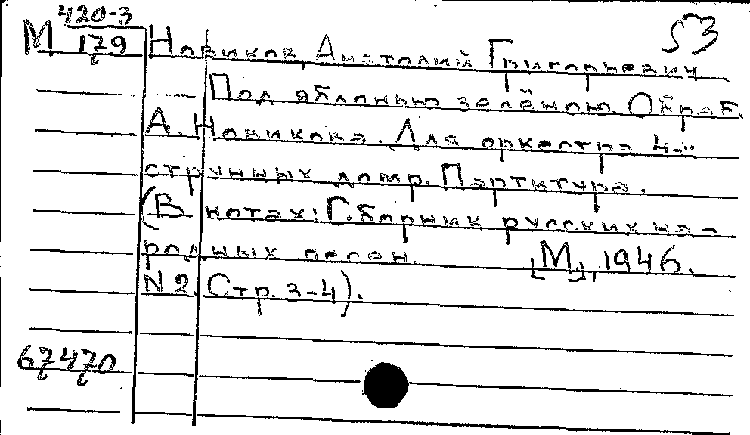 М 420-3
179
53
Новиков, Анатолий Григорьевич
Под яблонью зелёною. Обраб.
А. Новикова. Для оркестра 4-х
струнных домр. Партитура.
(В нотах: Сборник русских на-
родных песен. [М], 1946.
N 2. Стр. 3-4).
67470